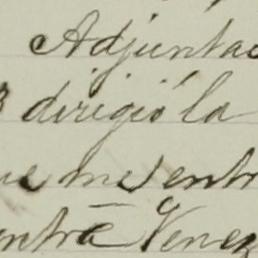 Adjuntac
3 dirigió la
ue me entr
entra Venez